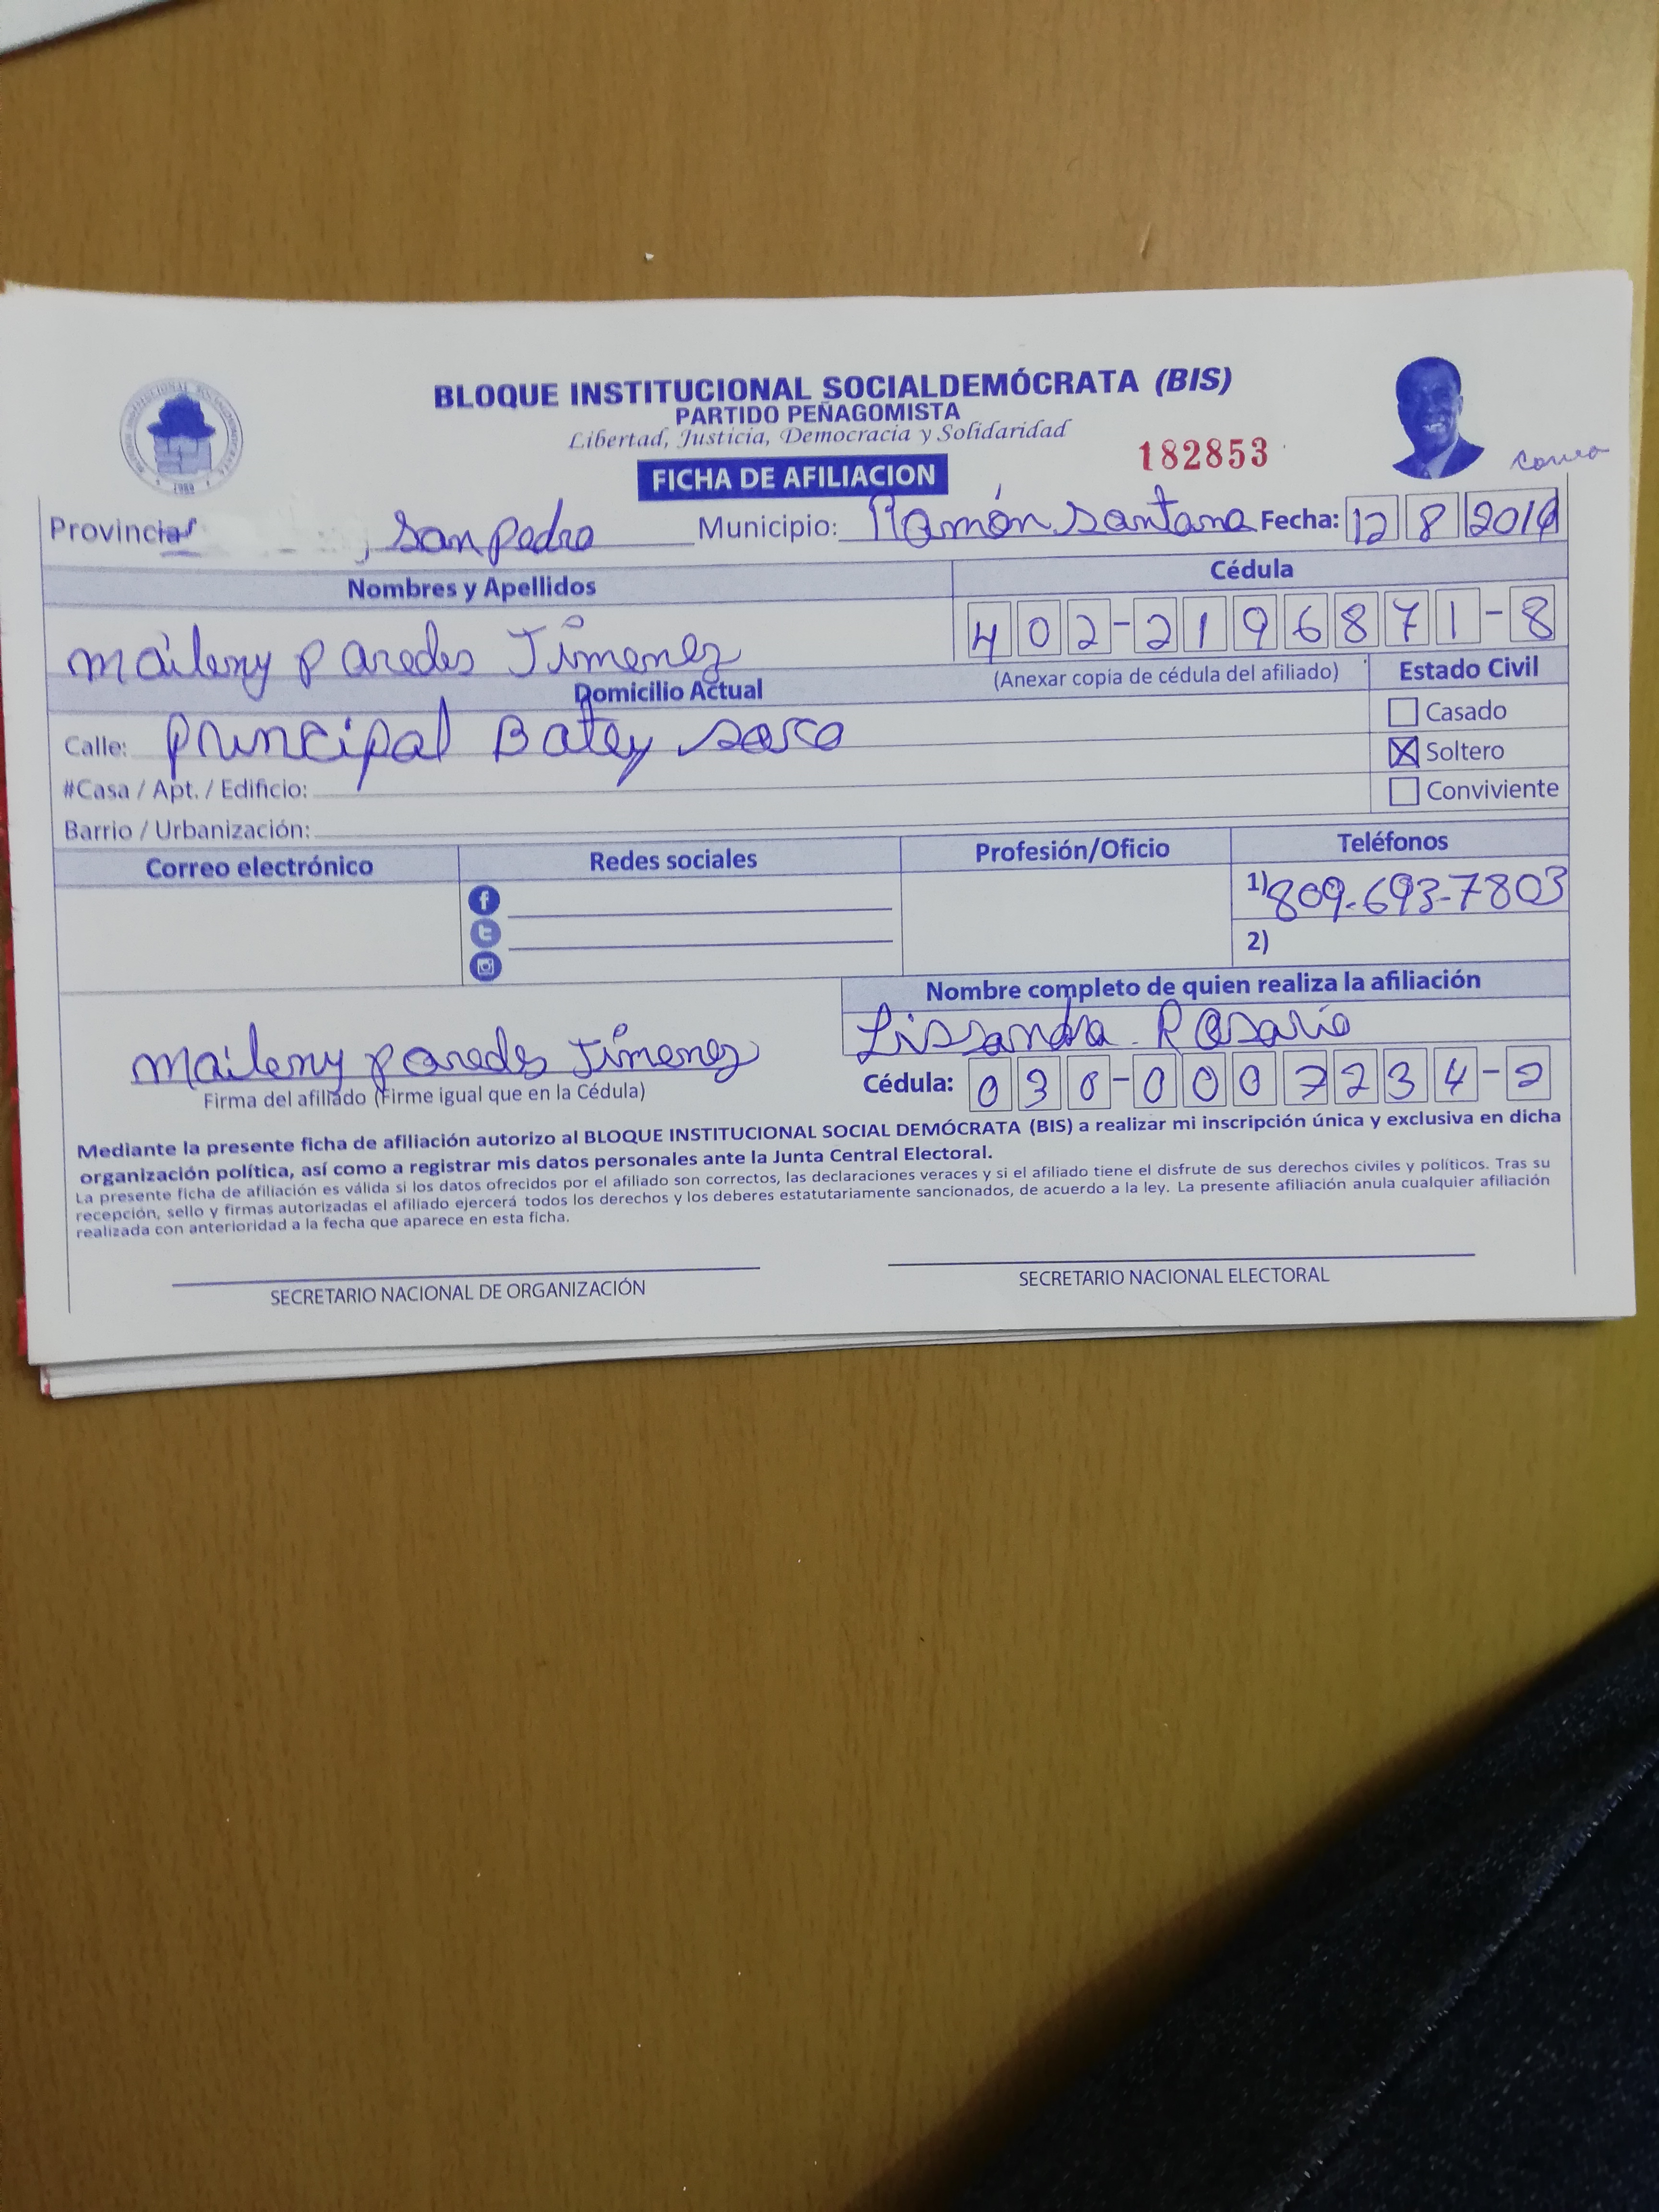 BLOQUE INSTITUCIONAL SOCIALDEMÓCRATA (BIS)
PARTIDO PEÑAGOMISTA
Libertad, Justicia, Democracia y Solidaridad
182853
FICHA DE AFILIACION
Provincia San Pedro Municipio: Ramón Santana Fecha: 12 8 2019
Nombres y Apellidos Cédula
Maileny Paredes Jimenez 402-2196871-8
Domicilio Actual (Anexar copia de cédula del afiliado) Estado Civil
Calle: Principal Batey Casado
#Casa / Apt. / Edificio: Soltero
Barrio / Urbanización: Conviviente
Correo electrónico Redes sociales Profesión/Oficio Teléfonos
1) 809-693-7803
2)
Nombre completo de quien realiza la afiliación
Lissandra Rosario
Maileny Paredes Jimenez
Firma del afiliado (Firme igual que en la Cédula) Cédula: 030-0007234-2
Mediante la presente ficha de afiliación autorizo al BLOQUE INSTITUCIONAL SOCIAL DEMÓCRATA (BIS) a realizar mi inscripción única y exclusiva en dicha
organización política, así como a registrar mis datos personales ante la Junta Central Electoral.
La presente ficha de afiliación es válida si los datos ofrecidos por el afiliado son correctos, las declaraciones veraces y si el afiliado tiene el disfrute de sus derechos civiles y políticos. Tras su
recepción, sello y firmas autorizadas el afiliado ejercerá todos los derechos y los deberes estatutariamente sancionados, de acuerdo a la ley. La presente afiliación anula cualquier afiliación
realizada con anterioridad a la fecha que aparece en esta ficha.
SECRETARIO NACIONAL DE ORGANIZACIÓN SECRETARIO NACIONAL ELECTORAL